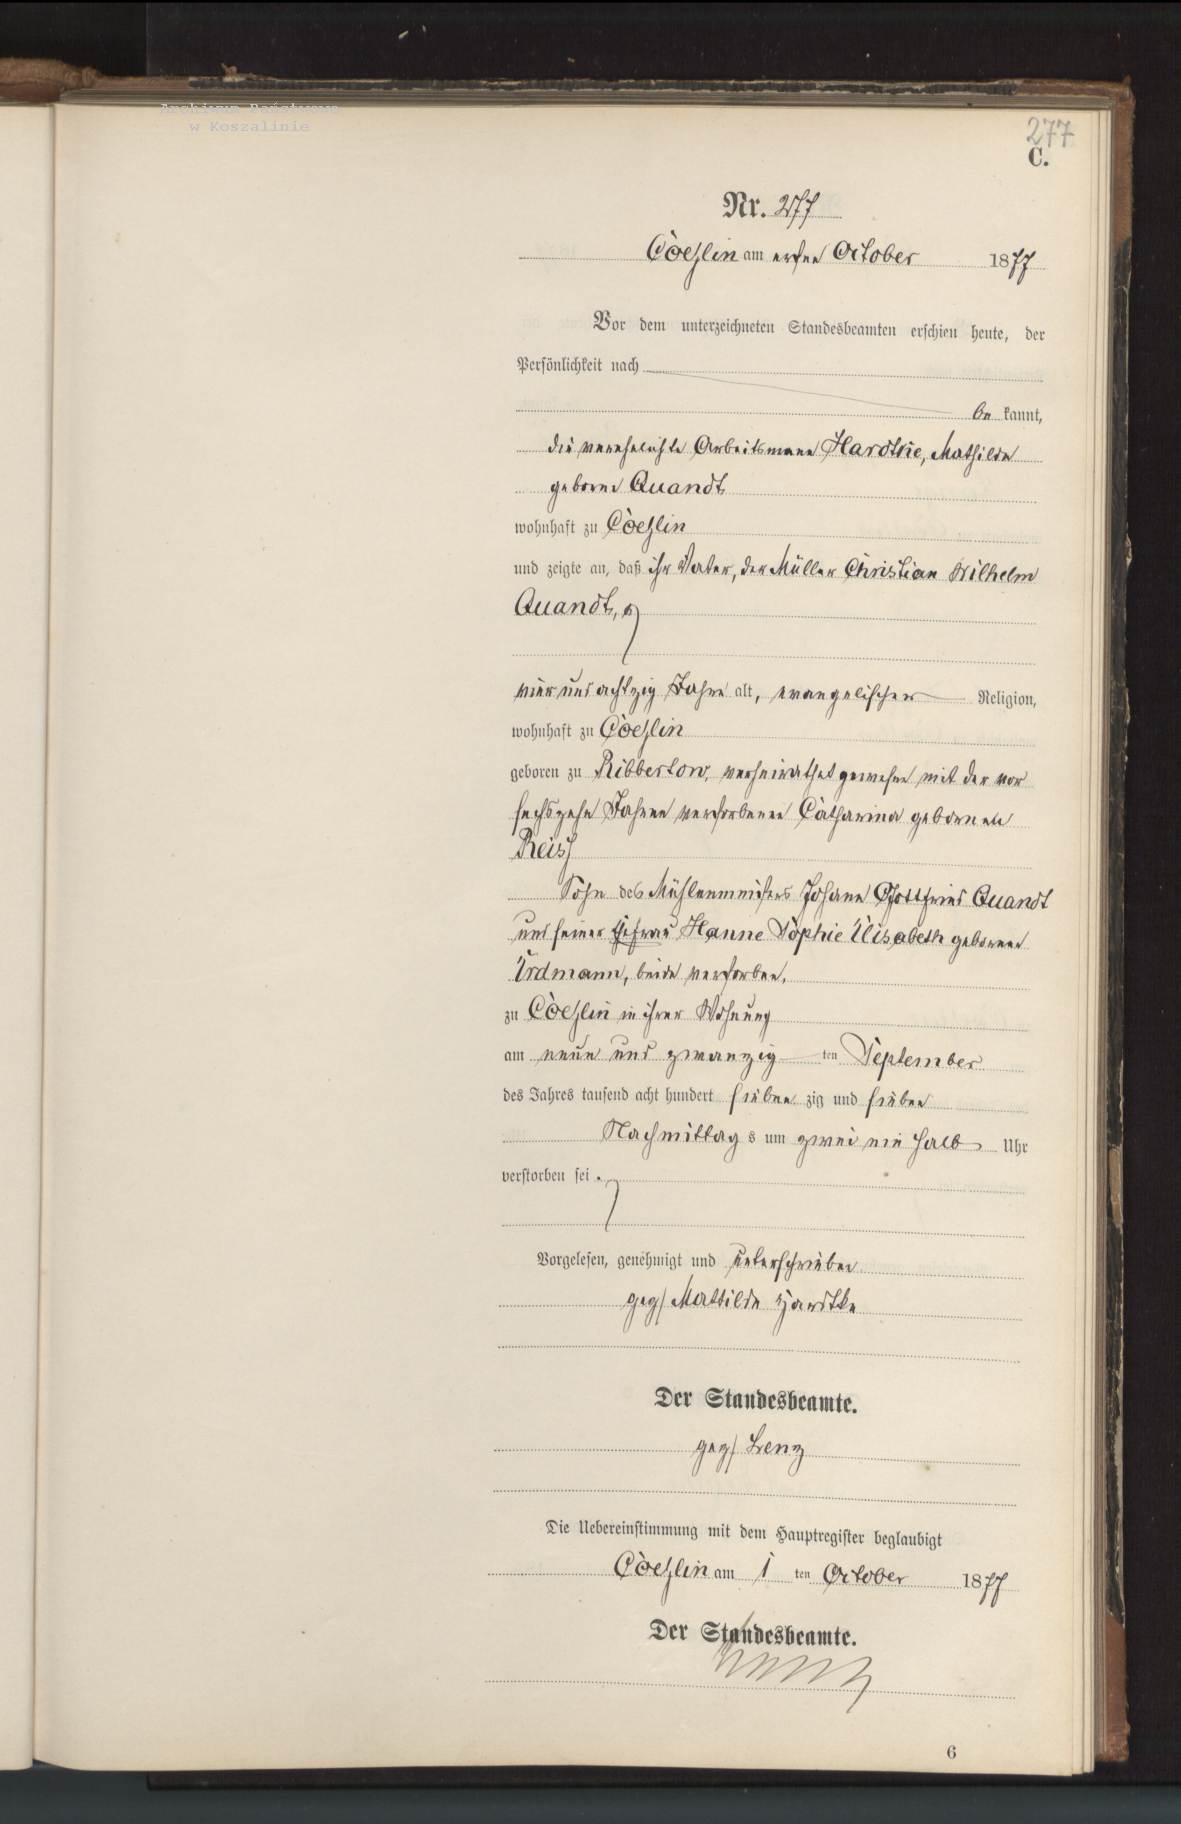 Archiwum Państwowe
w Koszalinie
277
C.
Nr. 277
Cöeslin am ersten October 1877
Vor dem unterzeichneten Standesbeamten erschien heute, der
Persönlichkeit nach
be kannt,
die verehelichte Arbeitsmann Hardtke, Mathilde
geborne Quandt
wohnhaft zu Cöeslin
und zeigte an, daß ihr Vater, der Müller Christian Wilhelm
Quandt,
vier und achtzig Jahre alt, evangelischer Religion,
wohnhaft zu Cöeslin
geboren zu Ribbertow, verheirathet gewesen mit der vor
sechszehn Jahren verstorbenen Catharina gebornen
Reisch
Sohn des Mühlenmeisters Johann Gottfried Quandt
und seiner Ehefrau Hanne Sophie Elisabeth geborenen
Erdmann, beide verstorben,
zu Cöeslin in ihrer Wohnung
am neun und zwanzig ten September
des Jahres tausend acht hundert sieben zig und sieben
Nachmittag s um zwei ein halb Uhr
verstorben sei.
Vorgelesen, genehmigt und unterschrieben
gez/ Mathilde Hardtke
Der Standesbeamte.
gez/ Lenz
Die Uebereinstimmung mit dem Hauptregister beglaubigt
Cöeslin am 1 ten October 1877
Der Standesbeamte.
Lenz
6